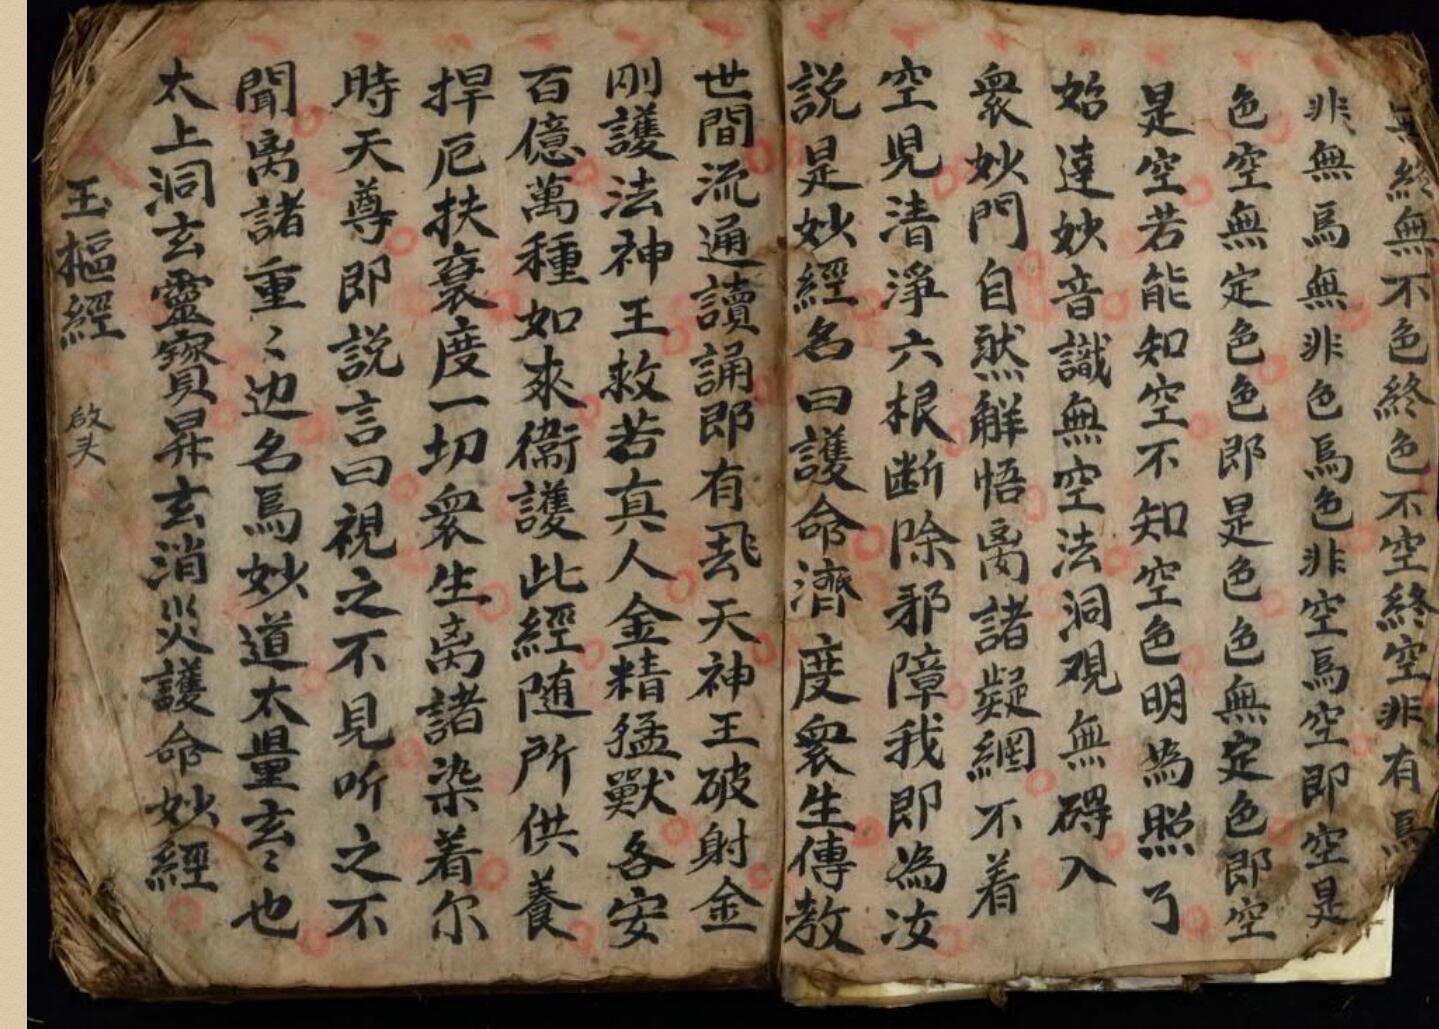 終無不色終色不空終空非有爲
非無爲無非色爲色非空爲空即空是
色空無定色色即是色色無定色即空
是空若能知空不知空色明爲照了
始達妙音識無空法洞观無碍入
衆妙門自然觧悟离諸疑網不着
空見清淨六根断除邪障我即爲汝
説是妙經名曰護命濟度衆生傳教
世間流通讀誦即有飛天神王破射金
刚護法神王救若真人金精猛獸各安
百億萬種如來衞護此經随所供養
捍厄扶衰度一切衆生离諸染着尔
時天尊即説言曰視之不見听之不
聞离諸重〻边名爲妙道太量玄〻也
太上洞玄靈寳昇玄消災護命妙經
玉樞經 啟头